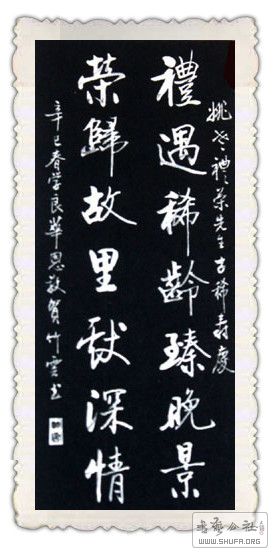 禮遇稀齡臻晚景
榮歸故里獻深情
禮榮先生古稀壽慶
辛巳春学良華恩敬賀竹雲书
书艺公社
WWW.SHUFA.ORG